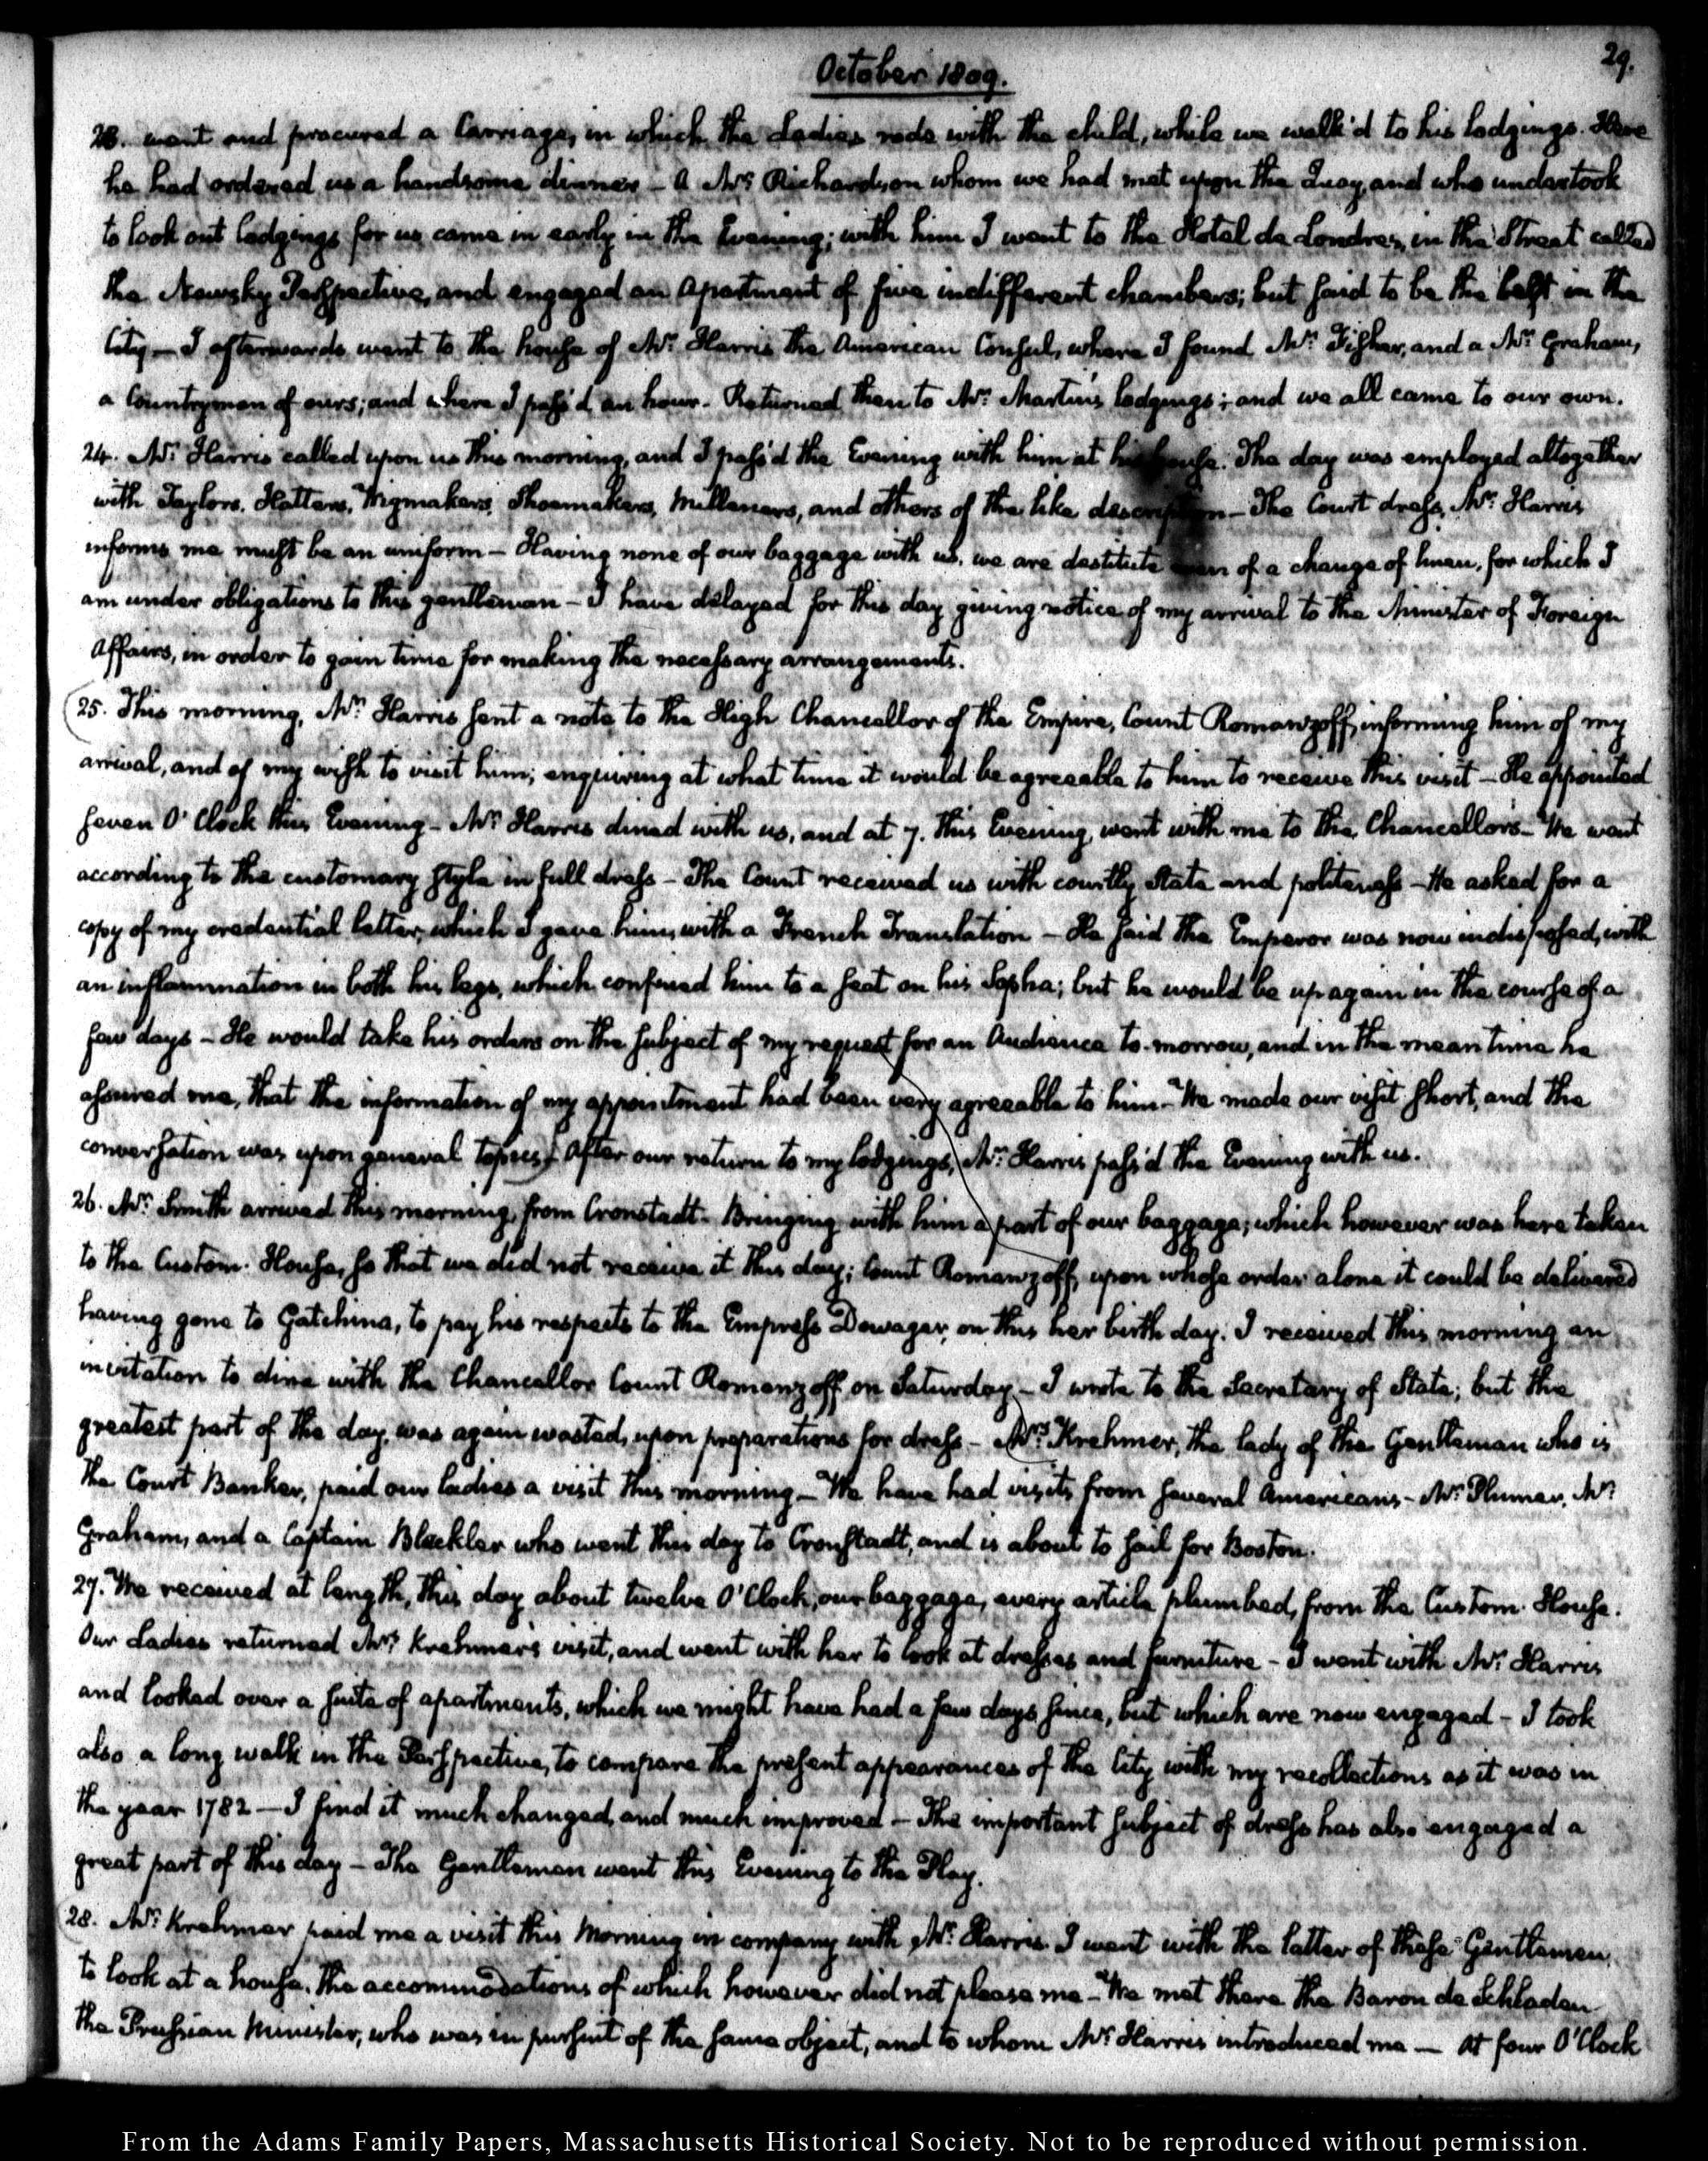 October 1809.
29.
23. went and procured a Carriage, in which the Ladies rode with the child, while we walk'd to his lodgings. Here
he had ordered us a handsome dinner – A Mr. Richardson whom we had met upon the Quay, and who undertook
to look out lodgings for us came in early in the Evening; with him I went to the Hotel de Londres, in the Street called
the Newsky Perspective, and engaged an Apartment of five indifferent chambers; but said to be the best in the
City – I afterwards went to the house of Mr. Harris the American Consul, where I found Mr. Fisher, and a Mr. Graham,
a Countryman of ours; and where I pass'd an hour. Returned then to Mr. Martin's lodgings; and we all came to our own.
24. Mr. Harris called upon us this morning, and I pass'd the Evening with him at his house. The day was employed altogether
with Taylors, Hatters, Wigmakers, Shoemakers, Milleners, and others of the like description – The Court dress, Mr. Harris
informs me must be an uniform – Having none of our baggage with us, we are destitute even of a change of linen, for which I
am under obligations to this gentleman – I have delayed for this day giving notice of my arrival to the Minister of Foreign
Affairs, in order to gain time for making the necessary arrangements.
25. This morning, Mr. Harris sent a note to the High Chancellor of the Empire, Count Romanzoff, informing him of my
arrival, and of my wish to visit him; enquiring at what time it would be agreeable to him to receive this visit – He appointed
seven O'Clock this Evening – Mr. Harris dined with us, and at 7. this Evening, went with me to the Chancellor's – We went
according to the customary style in full dress – The Count received us with courtly State and politeness – He asked for a
copy of my credential letter, which I gave him, with a French Translation – He said the Emperor was now indisposed, with
an inflammation in both his legs, which confined him to a seat on his Sopha; but he would be up again in the course of a
few days – He would take his orders on the subject of my request for an Audience to-morrow, and in the mean time he
assured me, that the information of my appointment had been very agreeable to him – We made our visit short, and the
conversation was upon general topics. After our return to my lodgings, Mr. Harris pass'd the Evening with us.
26. Mr. Smith arrived this morning, from Cronstadt – Bringing with him a part of our baggage; which however was here taken
to the Custom-House, so that we did not receive it this day; Count Romanzoff, upon whose order alone it could be delivered
having gone to Gatchina, to pay his respects to the Empress Dowager, on this her birth day. I received this morning an
invitation to dine with the Chancellor Count Romanzoff on Saturday – I wrote to the Secretary of State; but the
greatest part of the day, was again wasted, upon preparations for dress – Mrs. Krehmer, the lady of the Gentleman who is
the Court Banker, paid our ladies a visit this morning – We have had visits from several Americans – Mr. Plumer, Mr.
Graham, and a Captain Blackler who went this day to Cronstadt, and is about to sail for Boston.
27. We received at length, this day about twelve O'Clock, our baggage, every article plumbed, from the Custom-House.
Our Ladies returned Mrs. Krehmer's visit, and went with her to look at dresses and furniture – I went with Mr. Harris
and looked over a suite of apartments, which we might have had a few days since, but which are now engaged – I took
also a long walk in the Perspective, to compare the present appearances of the City with my recollections as it was in
the year 1782 – I find it much changed, and much improved – The important subject of dress has also engaged a
great part of this day – The Gentlemen went this Evening to the Play.
28. Mr. Krehmer paid me a visit this Morning in company with Mr. Harris. I went with the latter of these Gentlemen,
to look at a house, the accommodations of which however did not please me – We met there the Baron de Schladen
the Prussian Minister, who was in pursuit of the same object, and to whom Mr. Harris introduced me – At four O'Clock
From the Adams Family Papers, Massachusetts Historical Society. Not to be reproduced without permission.